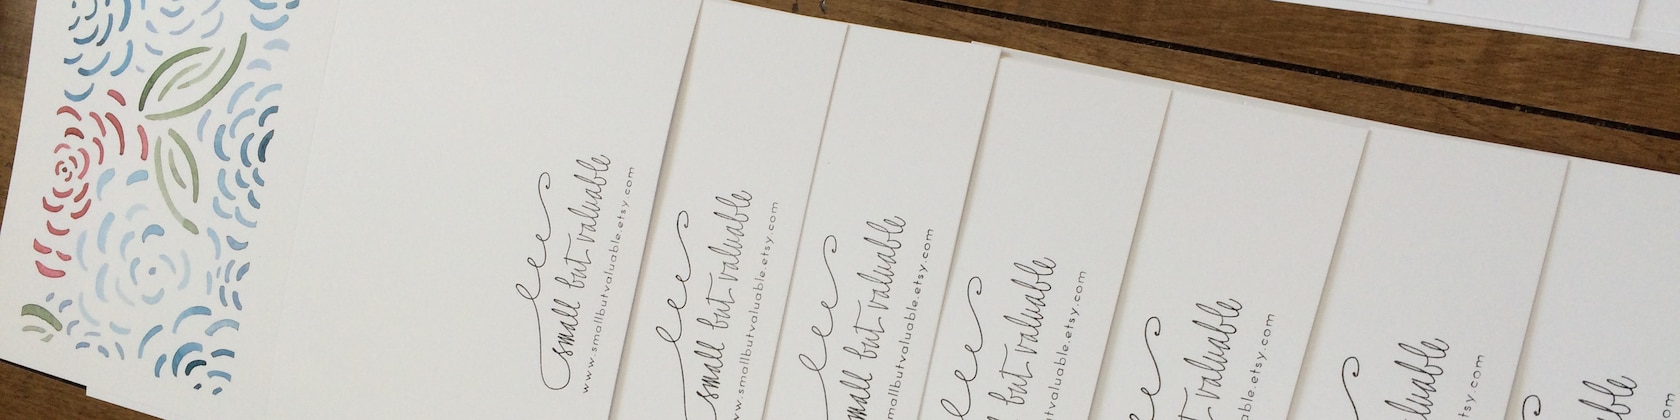 small but valuable
www.smallbutvaluable.etsy.com
small but valuable
www.smallbutvaluable.etsy.com
small but valuable
smallbutvaluable.etsy.com
but valuable
valuable.etsy.com
valuable
able.etsy.com
etsy.com